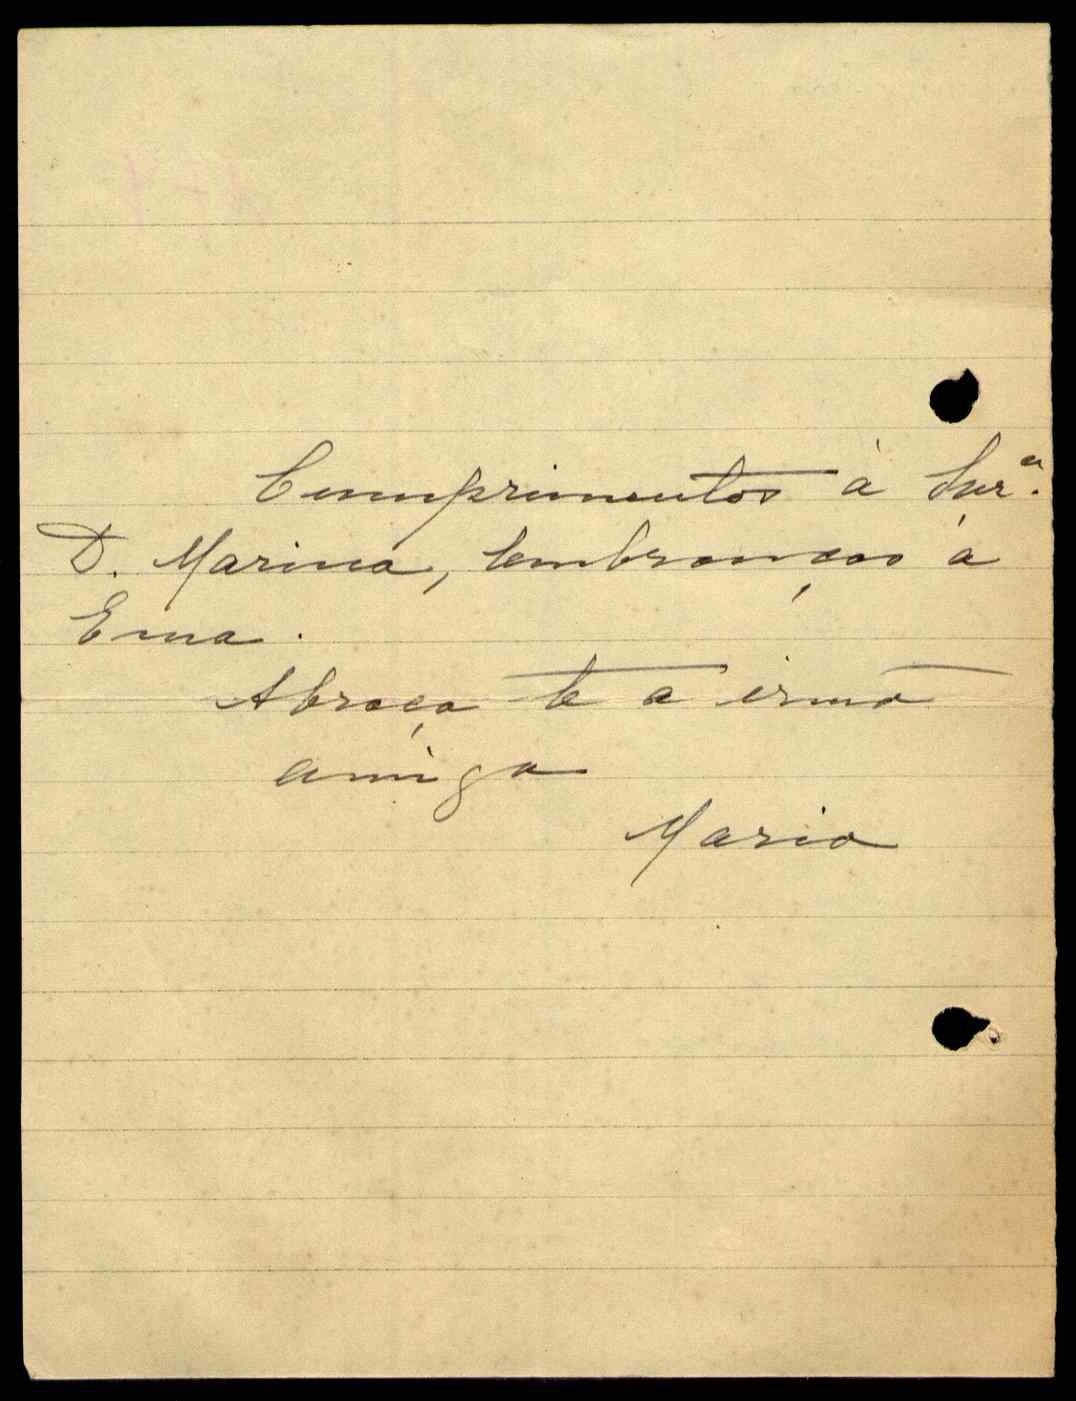 Cumprimentos à Snrª.
D. Marina, lembranças à
Ema.
Abraça-te a irmã
amiga
Maria